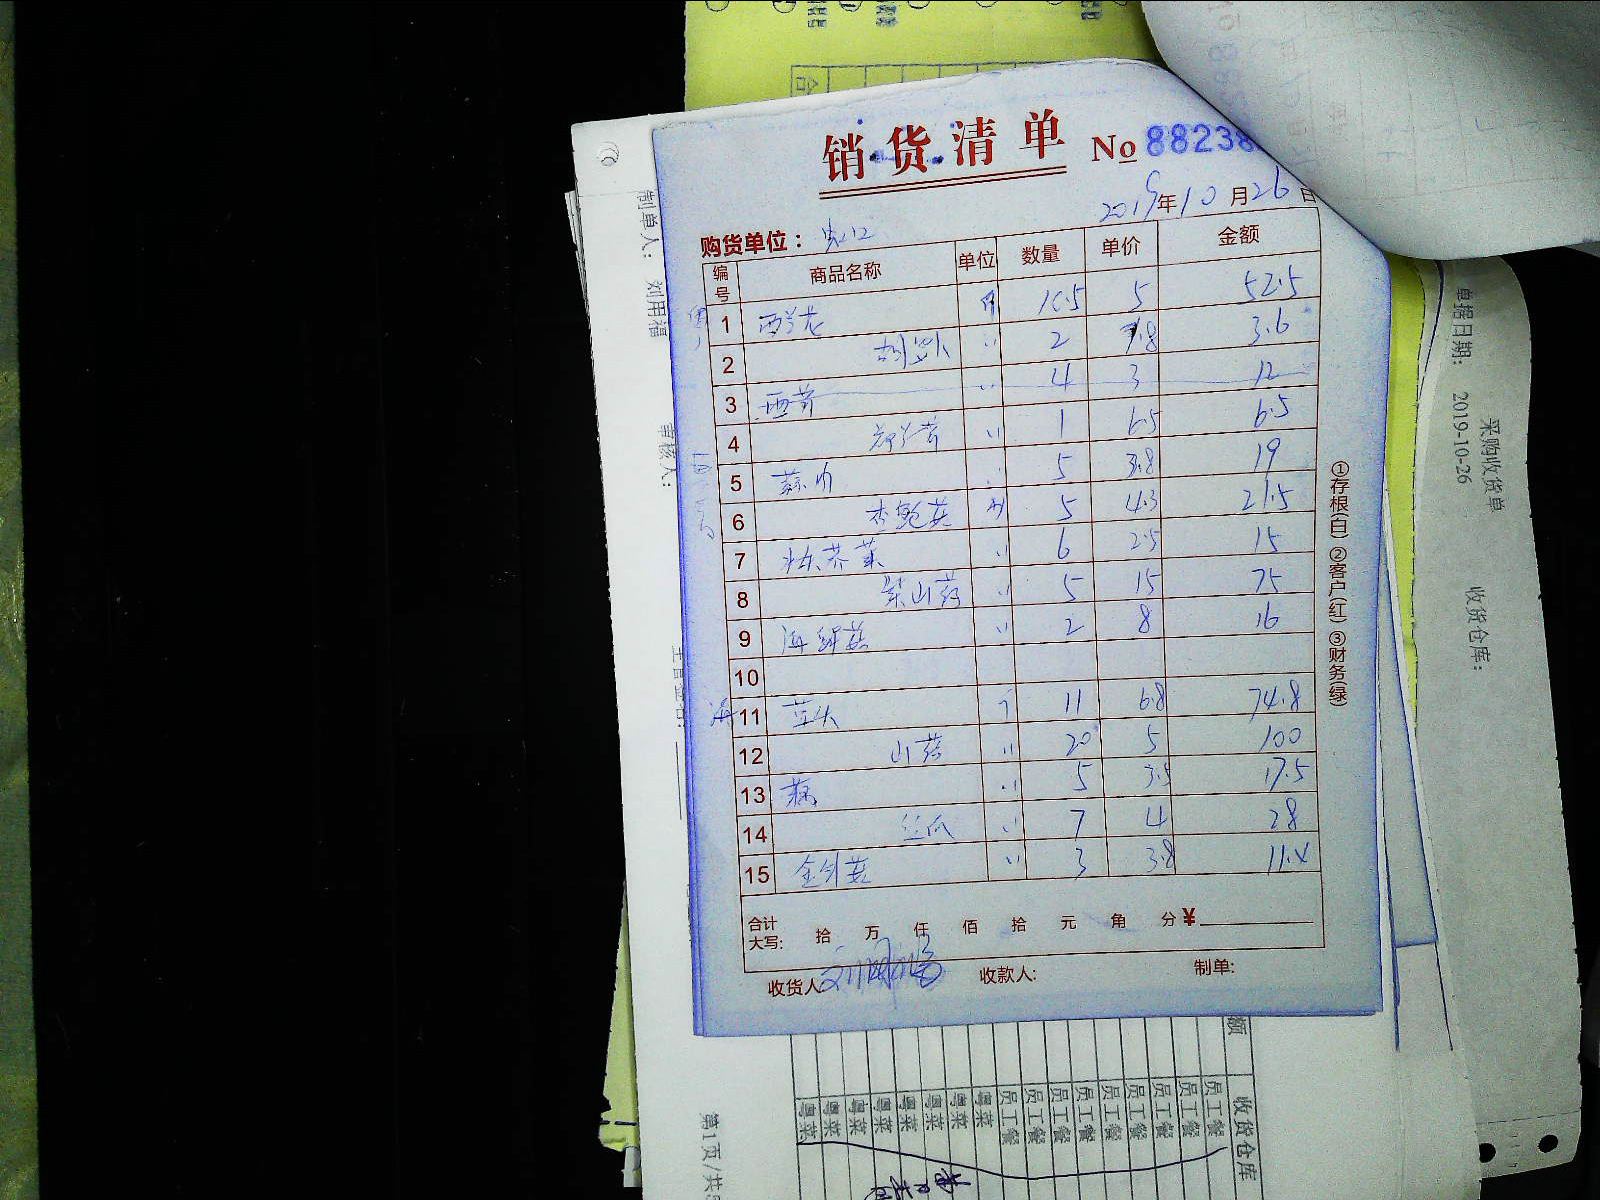 销货清单 No 88238
2019年10月26日
购货单位：
编号 商品名称 单位 数量 单价 金额
1 西兰花 斤 10.5 5 52.5
2 胡萝卜 〃 2 1.8 3.6
3 西芹 〃 4 3 12
4 〃 1 6.5 6.5
5 5 3.8 19
6 杏鲍菇 斤 5 4.3 21.5
7 芥菜 〃 6 2.5 15
8 紫山药 〃 5 15 75
9 海鲜菇 〃 2 8 16
10
11 11 6.8 74.8
12 山药 〃 20 5 100
13 〃 5 3.5 17.5
14 丝瓜 〃 7 4 28
15 金针菇 〃 3 3.8 11.4
合计
大写: 拾 万 仟 佰 拾 元 角 分 ¥
收货人 刘用福 收款人: 制单:
①存根(白) ②客户(红) ③财务(绿)
制单人: 刘用福
审核人:
采购收货单
单据日期: 2019-10-26
收货仓库:
额 收货仓库
员工餐
员工餐
员工餐
员工餐
员工餐
员工餐
员工餐
员工餐
员工餐
粤菜
粤菜
粤菜
粤菜
粤菜
粤菜
粤菜
粤菜
第1页/共